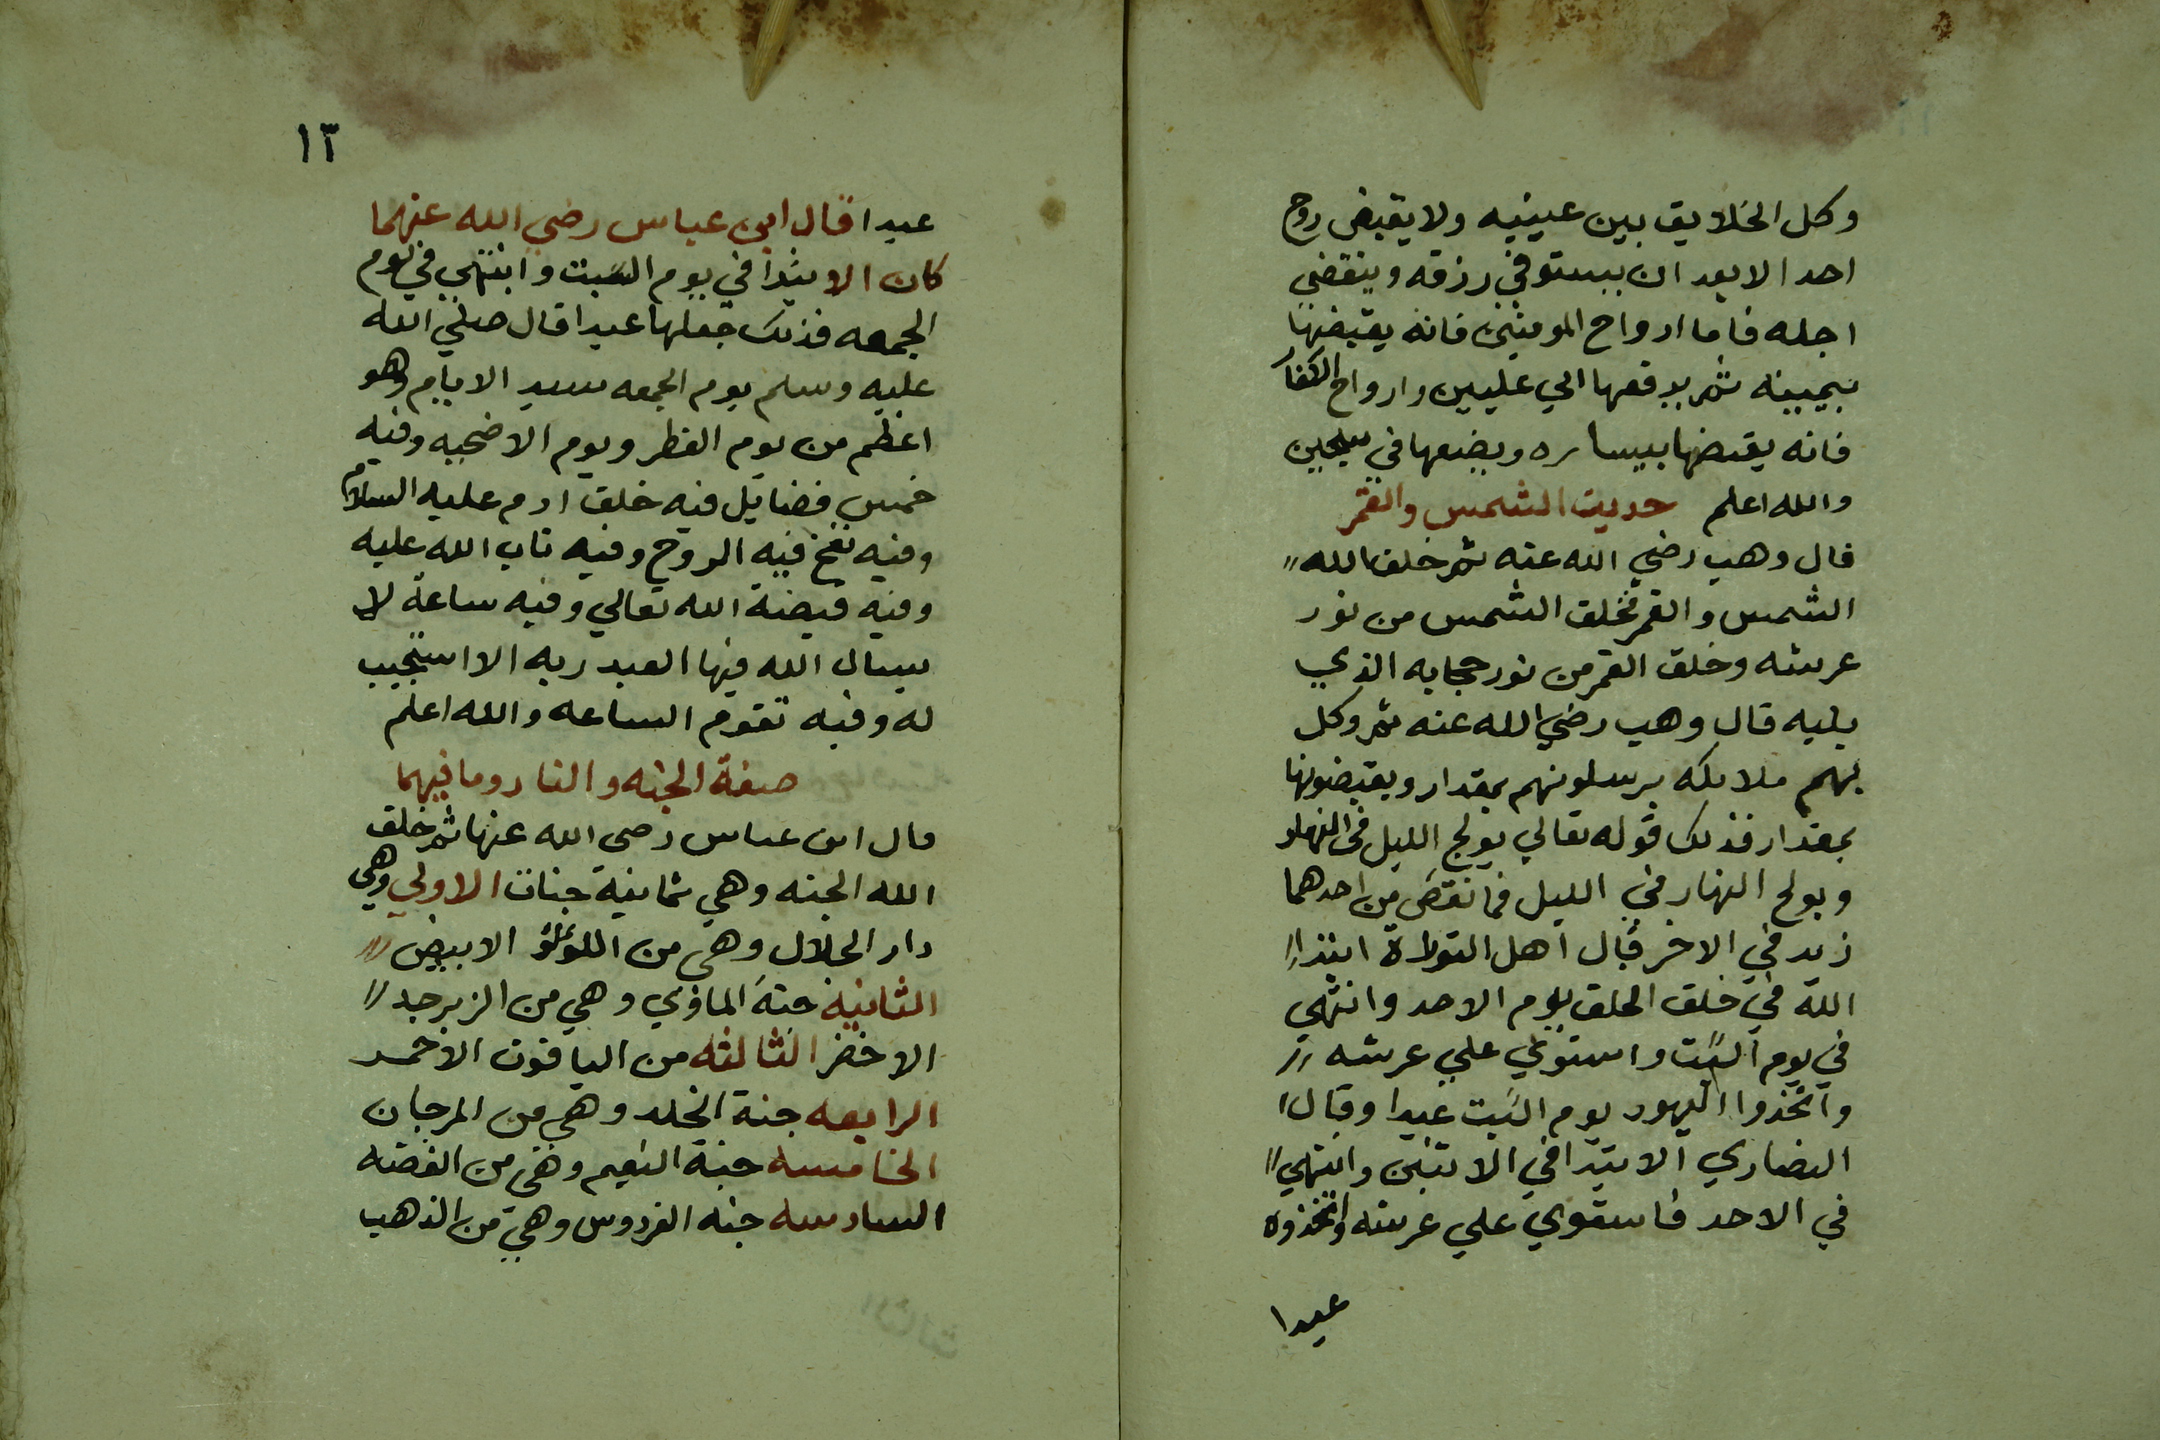 وكل الخلايق بين عينيه ولا يقبض روح
احد الا بعد ان يستوفي رزقه وينقضي
اجله فاما ارواح المومنين فانه يقبضها
بيمينه ثم يرفعها الي عليين وارواح الكفار
فانه يقبضها بيساره ويضعها في سجين
والله اعلم حديث الشمس والقمر
قال وهب رضي الله عنه ثم خلق الله
الشمس والقمر فخلق الشمس من نور
عرشه وخلق القمر من نور حجابه الذي
يليه قال وهب رضي الله عنه ثم وكل
بهم ملايكه يرسلونهم بمقدار ويقبضونها
بمقدار فذلك قوله تعالي يولج الليل في النهار
ويولج النهار في الليل فما نقص من احدهما
زيد في الاخر قال اهل التوراة ابتدا
الله في خلق الخلق يوم الاحد وانتهي
في يوم السبت واستوي علي عرشه
واتخذوا اليهود يوم السبت عيدا وقال
النصاري الابتدا في الاثنين وانتهي
في الاحد فاستوي علي عرشه واتخذوه
عيدا
١٣
عيدا قال ابن عباس رضي الله عنهما
كان الابتدا في يوم السبت وانتهي في يوم
الجمعه فذلك جعلها عيدا قال صلي الله
عليه وسلم يوم الجمعه سيد الايام وهو
اعظم من يوم الفطر ويوم الاضحيه وفيه
خمس فضايل فيه خلق ادم عليه السلام
وفيه نفخ فيه الروح وفيه تاب الله عليه
وفيه قبضة الله تعالي وفيه ساعة لا
يسال الله فيها العبد ربه الا استجيب
له وفيه تقوم الساعه والله اعلم
صفة الجنه والنار وما فيهما
قال ابن عباس رضي الله عنها ثم خلق
الله الجنه وهي ثمانية جنات الاولي وهي
دار الجلال وهي من اللولو الابيض
الثانيه جنة الماوي وهي من الزبرجد
الاخضر الثالثه من الياقوت الاحمر
الرابعه جنة الخلد وهي من المرجان
الخامسه جنة النعيم وهي من الفضه
السادسه جنه الفردوس وهي من الذهب